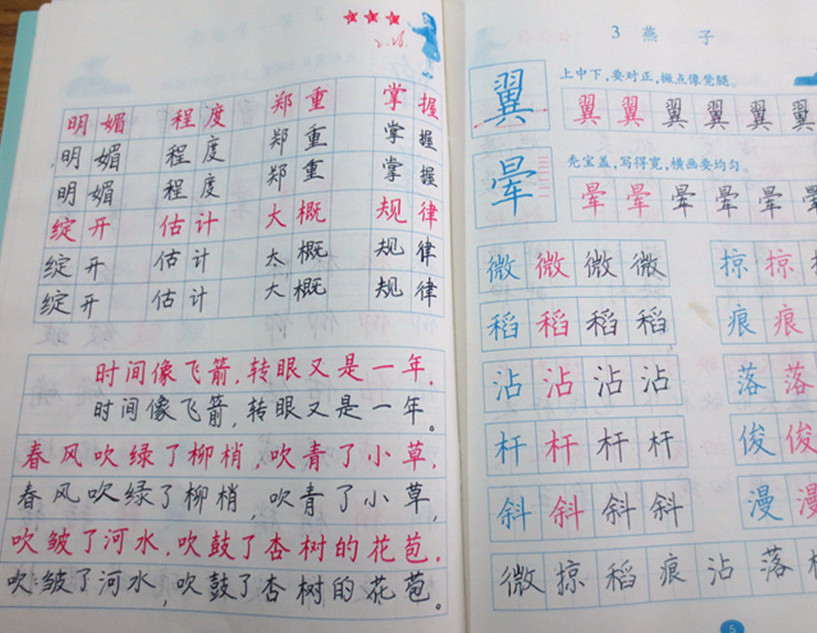 2.26.
明媚 程度 郑重 掌握
明媚 程度 郑重 掌握
明媚 程度 郑重 掌握
绽开 估计 大概 规律
绽开 估计 大概 规律
绽开 估计 大概 规律
时间像飞箭,转眼又是一年.
时间像飞箭,转眼又是一年。
春风吹绿了柳梢,吹青了小草,
春风吹绿了柳梢,吹青了小草,
吹皱了河水,吹鼓了杏树的花苞.
吹皱了河水,吹鼓了杏树的花苞。
3 燕子
上中下,要对正,撇点像凳腿。
翼 翼 翼 翼 翼 翼 翼
秃宝盖,写得宽,横画要均匀。
晕 晕 晕 晕 晕 晕 晕
微 微 微 微 掠 掠
稻 稻 稻 稻 痕 痕
沾 沾 沾 沾 落 落
杆 杆 杆 杆 俊 俊
斜 斜 斜 斜 漫 漫
微 掠 稻 痕 沾 落
5